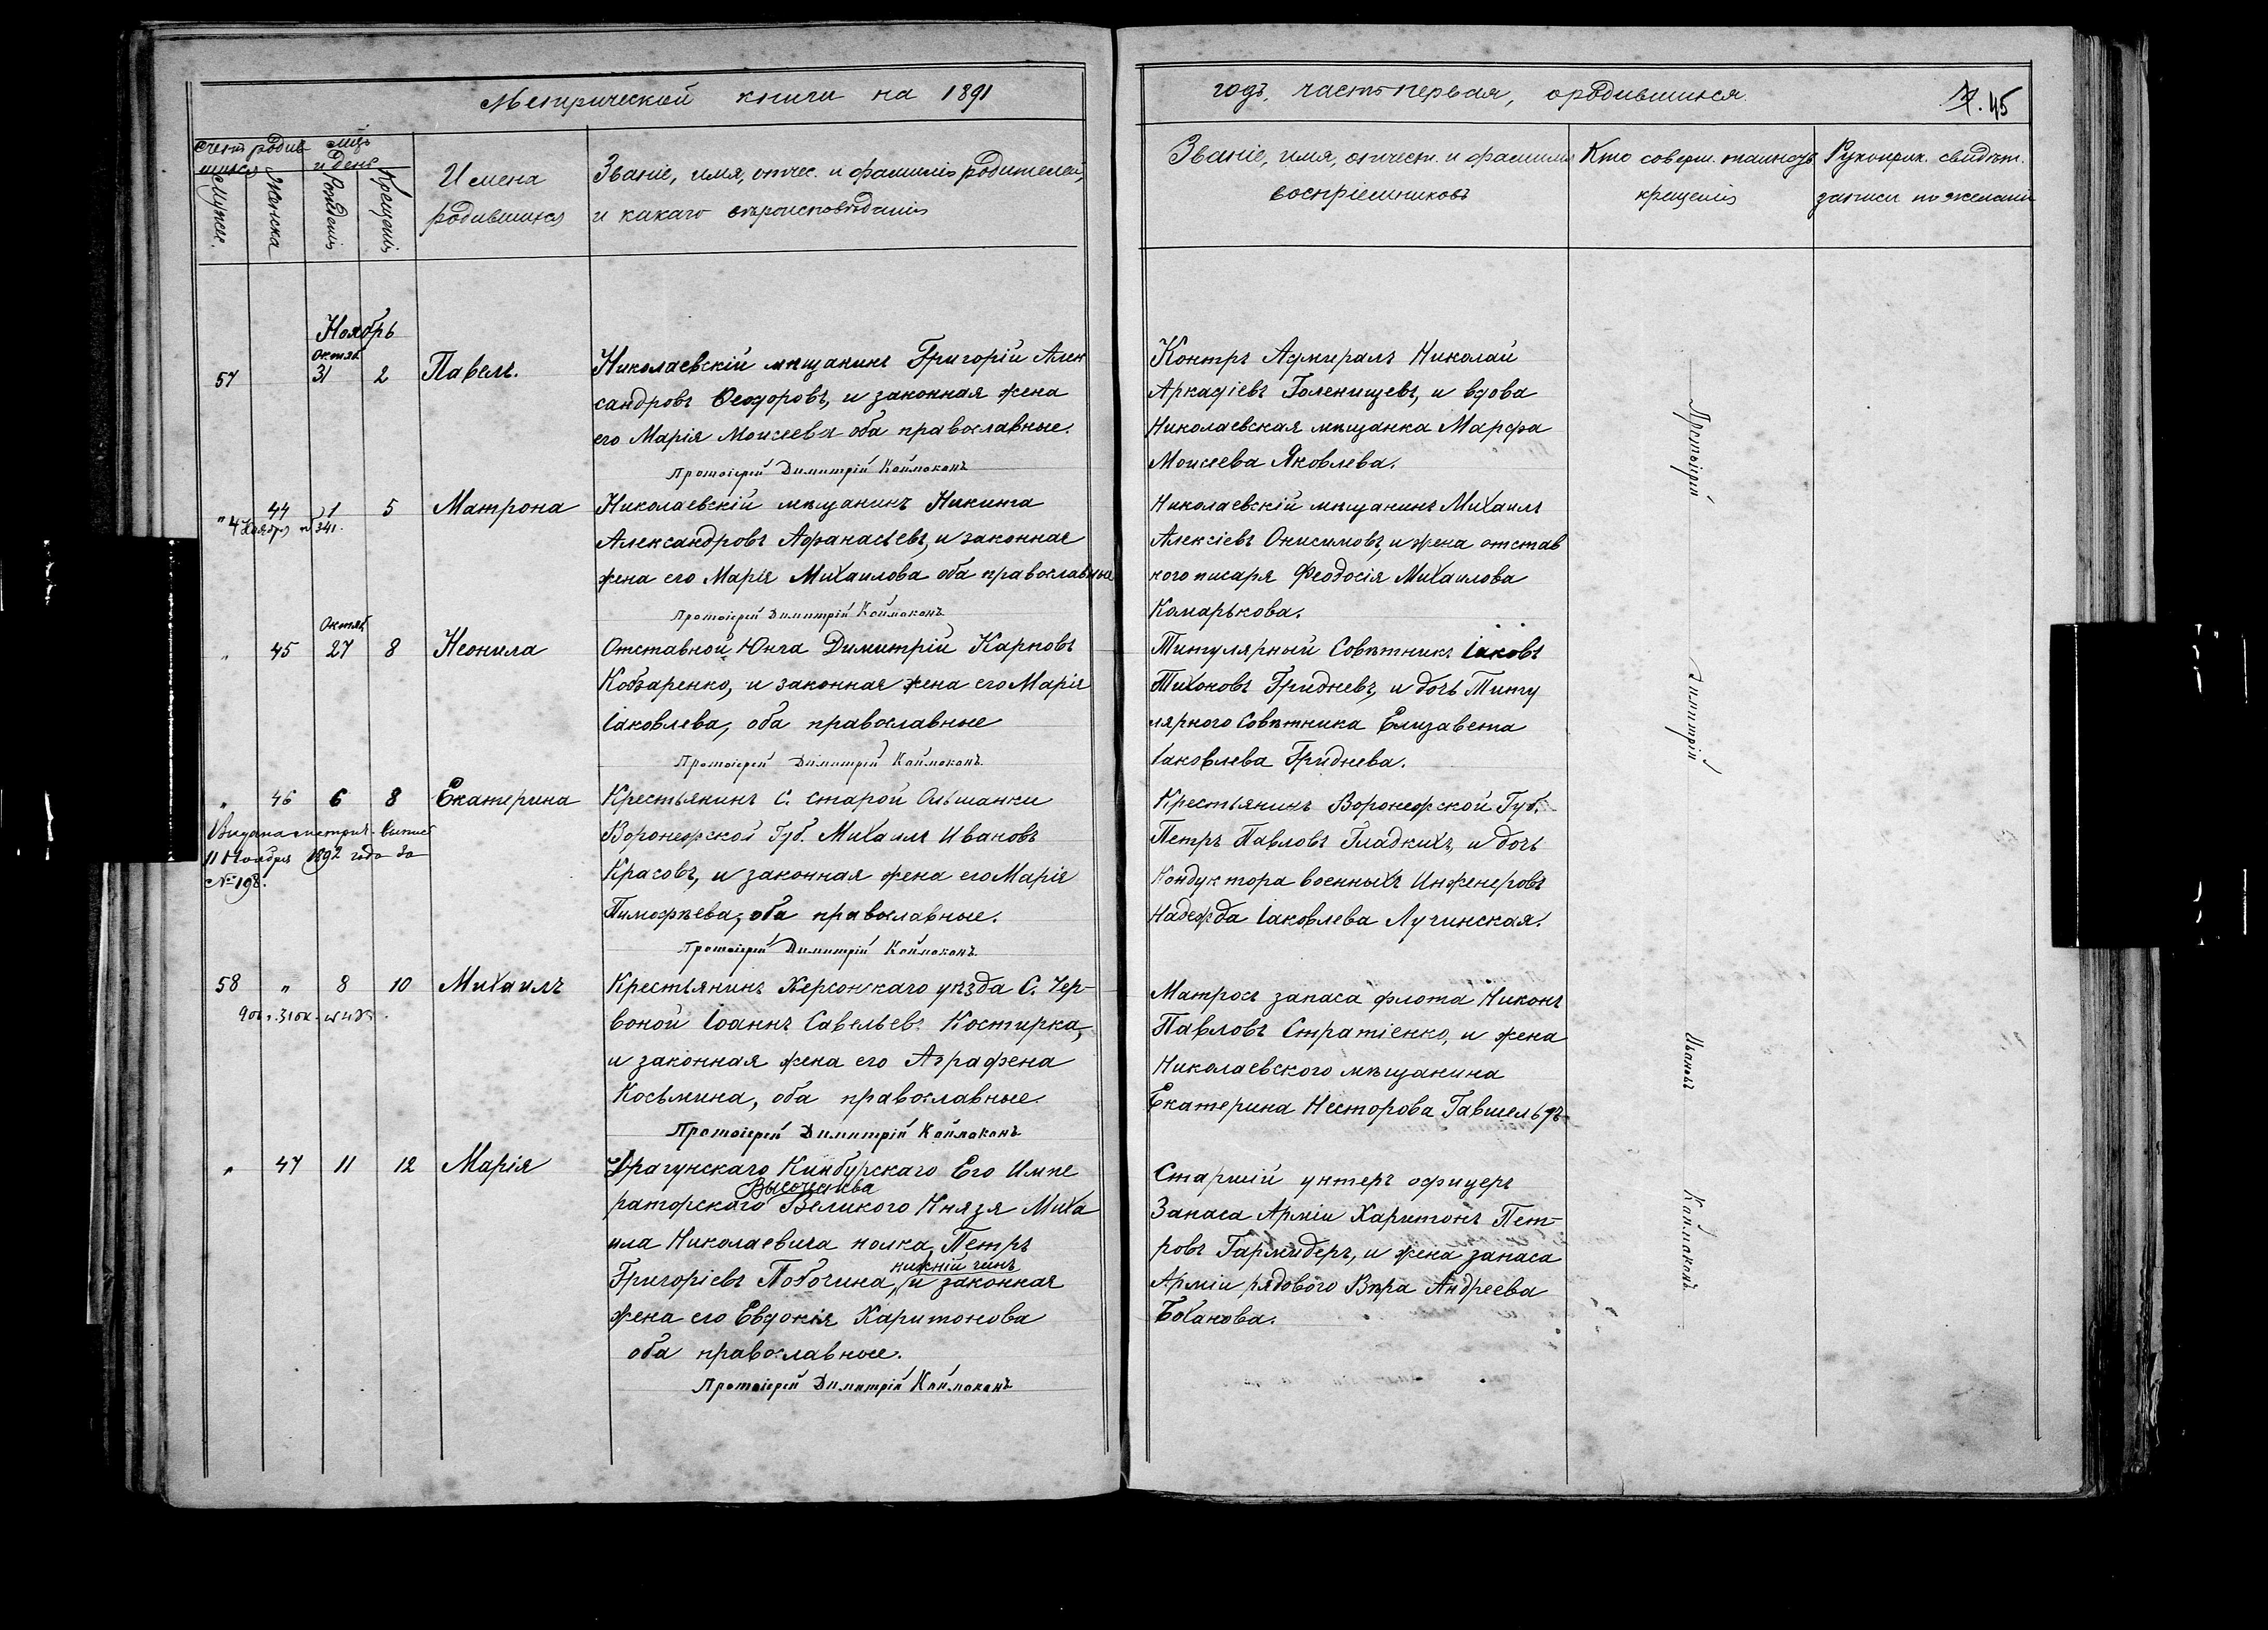 Метрической книги на 1891
годъ, часть первая, о родившихся.
45
Счетъ родив-
шихся
Мужес.
Женска
мѣсъ
и день
Рожденія
Крещенія
Имена
родившихся
Званіе, имя, отчес. и фамилія родителей,
и какаго вѣроисповѣданія
Званіе, имя, отчест. и фамилія
воспріемниковъ
Кто соверш. таинство
крещенія
Рукоприк. свидѣт.
записи по желанію
Ноябрь
Октяб.
57 31 2 Павелъ.
Николаевскій мѣщанинъ Григорій Алек
сандровъ Ѳеодоровъ, и законная жена
его Марія Моисеева оба православные.
Протоіерей Димитрій Каймаканъ
Контръ Адмиралъ Николай
Аркадіевъ Голенищевъ, и вдова
Николаевская мѣщанка Марфа
Моисеева Яковлева.
" 44 1 5 Матрона
4 Ноября № 341.
Николаевскій мѣщанинъ Никита
Александровъ Афанасьевъ, и законная
жена его Марія Михаилова оба православные
Протоіерей Димитрій Каймаканъ
Николаевскій мѣщанинъ Михаилъ
Алексіевъ Онисимовъ, и жена отстав
ного писаря Феодосія Михаилова
Комарькова.
Октяб.
" 45 27 8 Неонила
Отставной Юнга Димитрій Карповъ
Кобзаренко, и законная жена его Марія
Іаковлева, оба православные
Протоіерей Димитрій Каймаканъ
Титулярный Совѣтникъ Іаковъ
Тихоновъ Гридневъ, и дочь Титу
лярного Совѣтника Елизавета
Іаковлева Гриднева.
" 46 6 8 Екатерина
Выдана метрич. выпись
11 Ноября 1892 года за
№ 198.
Крестьянинъ С. Старой Ольшанки
Воронежской Губ. Михаилъ Ивановъ
Красовъ, и законная жена его Марія
Тимофѣева, оба православные.
Протоіерей Димитрій Каймаканъ
Крестьянинъ Воронежской Губ.
Петръ Павловъ Гладкихъ, и дочь
Кондуктора военныхъ Инженеровъ
Надежда Іаковлева Лучинская.
58 " 8 10 Михаилъ
Крестьянинъ Херсонскаго уѣзда С. Чер-
воной Іоаннъ Савельевъ Костирка,
и законная жена его Аграфена
Косьмина, оба православные.
Протоіерей Димитрій Каймаканъ
Матросъ запаса флота Никонъ
Павловъ Стратіенко, и жена
Николаевского мѣщанина
Екатерина Несторова
" 47 11 12 Марія
Драгунскаго Кинбурскаго Его Импе
Высочества
раторскаго Великого Князя Миха
ила Николаевича полка, Петръ
нижній чинъ
Григоріевъ Поточина, и законная
жена его Евдокія Харитонова
оба православные.
Протоіерей Димитрій Каймаканъ
Старшій унтеръ офицеръ
Запаса Арміи Харитонъ Пет-
ровъ Гармидеръ, и жена запаса
Арміи рядового Вѣра Андреева
Боханова.
Протоіерей
Димитрій
Ивановъ
Каймаканъ